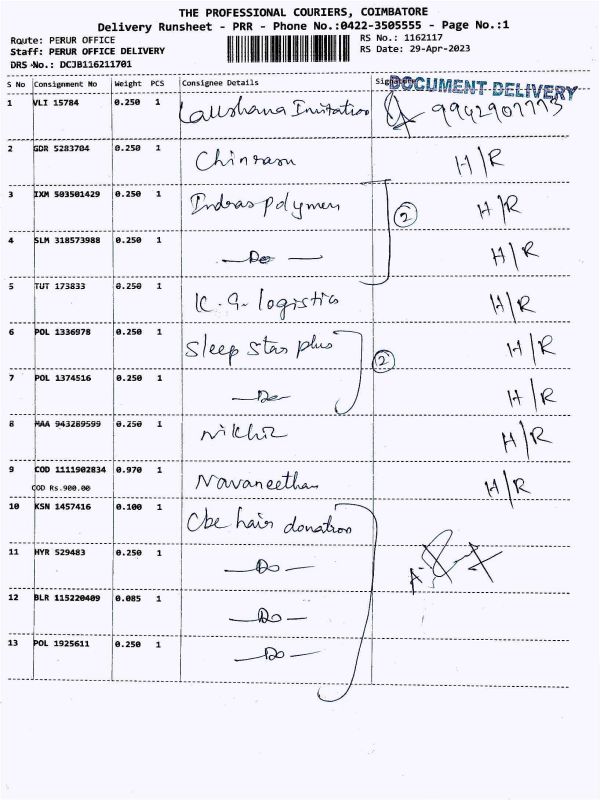 THE PROFESSIONAL COURIERS, COIMBATORE
Delivery Runsheet - PRR - Phone No.:0422-3505555 - Page No.:1
Route: PERUR OFFICE
Staff: PERUR OFFICE DELIVERY
DRS No.: DCJB116211701
RS No.: 1162117
RS Date: 29-Apr-2023
S No Consignment No Weight PCS Consignee Details Signature
DOCUMENT DELIVERY
1 VLI 15784 0.250 1 Imitation 9942901773
2 GDR 5283704 0.250 1 H/R
3 IXM 503501429 0.250 1 Indras polymers H/R
2
4 SLM 318573988 0.250 1 — Do — H/R
5 TUT 173833 0.250 1 K.G. logistics H/R
6 POL 1336978 0.250 1 Sleep Star plus H/R
2
7 POL 1374516 0.250 1 — Do — H/R
8 MAA 943289599 0.250 1 Nikhil H/R
9 COD 1111902834 0.970 1 Navaneethan H/R
COD Rs.900.00
10 KSN 1457416 0.100 1 Cbe hair donation
11 HYR 529483 0.250 1 — Do —
12 BLR 115220409 0.085 1 — Do —
13 POL 1925611 0.250 1 — Do —